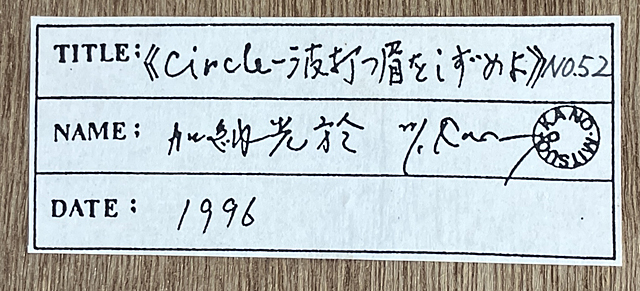 TITLE:《Circle—波打つ眉をしずめよ》NO.52
NAME: 加納光於 M. Kano KANO・MITSUO
DATE: 1996